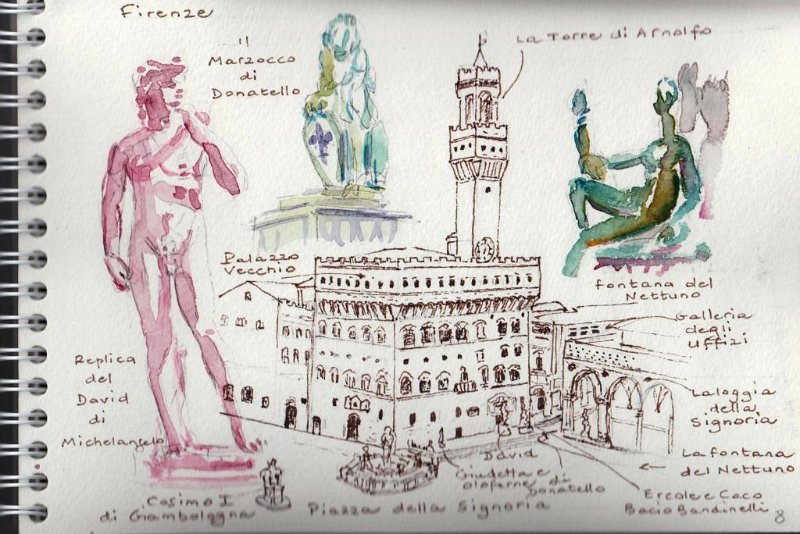 Firenze
il
Marzocco
di
Donatello
La Torre di Arnolfo
Palazzo
Vecchio
Fontana del
Nettuno
Galleria
degli
Uffizi
Replica
del
David
di
Michelangelo
La loggia
della
Signoria
La fontana
del Nettuno
David
Giudetta e
Oloferne di
Donatello
Ercole e Caco
Bacio Bandinelli
Cosimo I
di Giambologna
Piazza della Signoria
8